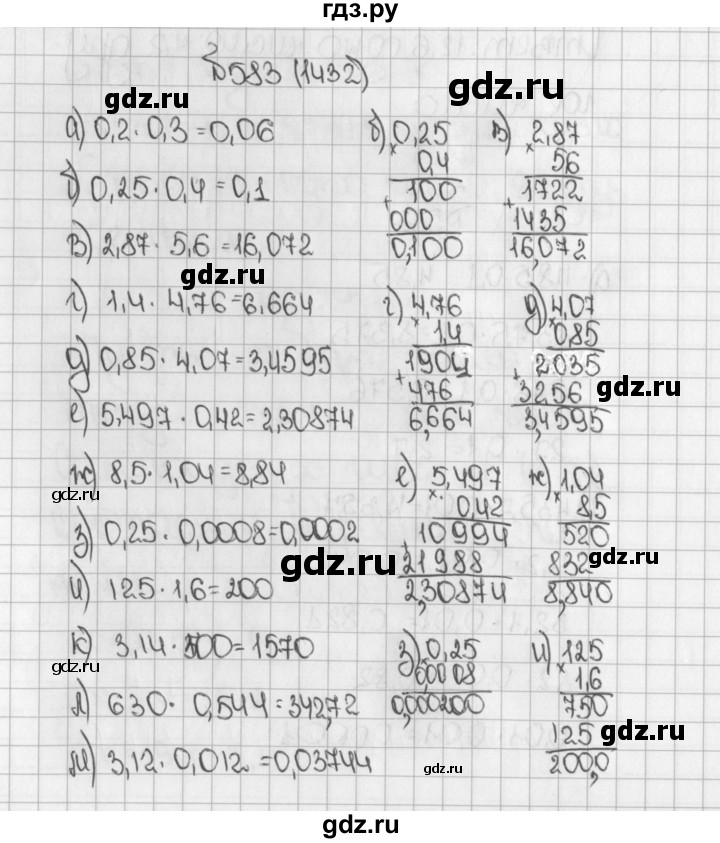 гдз.ру
№583 (1432)
gdz.ru
gdz.ru
а) 0,2 · 0,3 = 0,06
б) 0,25 · 0,4 = 0,1
в) 2,87 · 5,6 = 16,072
gdz.ru
г) 1,4 · 4,76 = 6,664
д) 0,85 · 4,07 = 3,4595
е) 5,497 · 0,42 = 2,30874
ж) 8,5 · 1,04 = 8,84
gdz.ru
з) 0,25 · 0,0008 = 0,0002
и) 125 · 1,6 = 200
к) 3,14 · 500 = 1570
gdz.ru
л) 630 · 0,544 = 342,72
м) 3,12 · 0,012 = 0,03744
б) 0,25
×
0,4
100
+
000
0,100
в) 2,87
×
56
1722
+
1435
16,072
г) 4,76
×
1,4
1904
+
476
6,664
д) 4,07
×
0,85
2035
+
3256
3,4595
gdz.ru
е) 5,497
×
0,42
10994
+
21988
2,30874
gdz.ru
ж) 1,04
×
8,5
520
832
8,840
з) 0,25
×
0,0008
0,000200
и) 125
×
1,6
750
125
200,0
gdz.ru
gdz.ru
gdz.ru